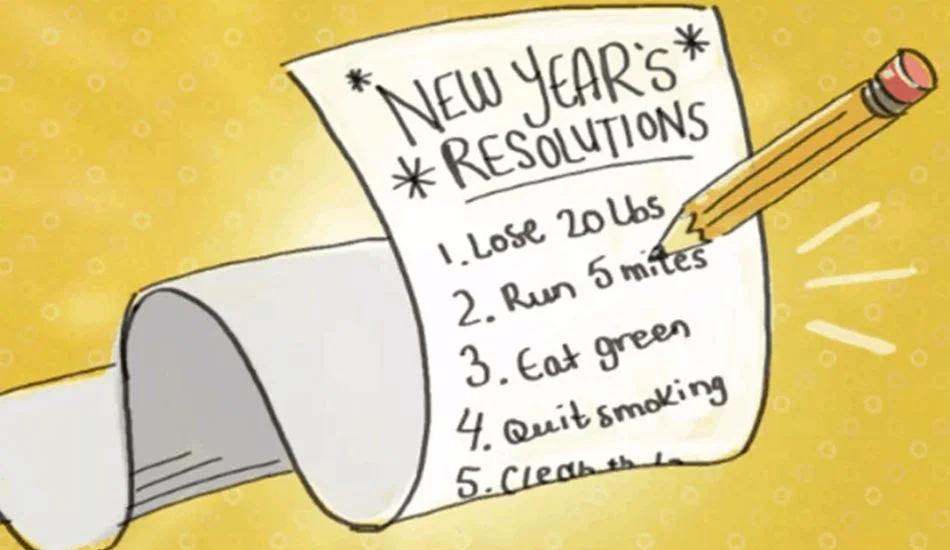 NEW YEAR'S
RESOLUTIONS
1. Lose 20 lbs
2. Run 5 miles
3. Eat green
4. Quit smoking
5. Clean